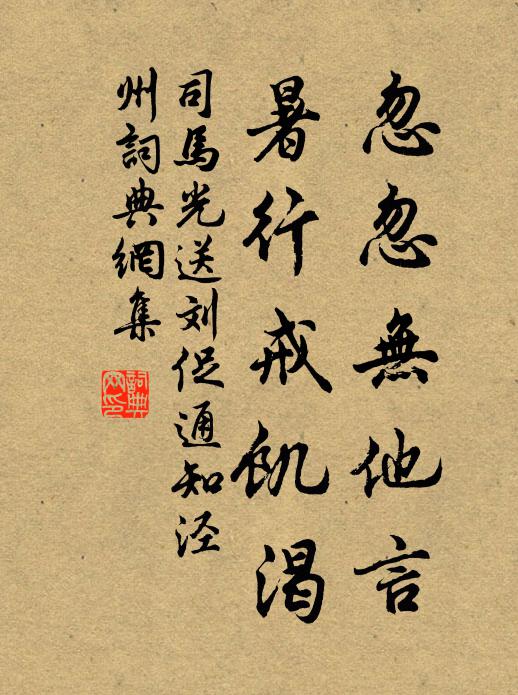 忽忽無他言
暑行戒飢渴
司馬光送刘促通知泾
州詞典網集
詞典
网印